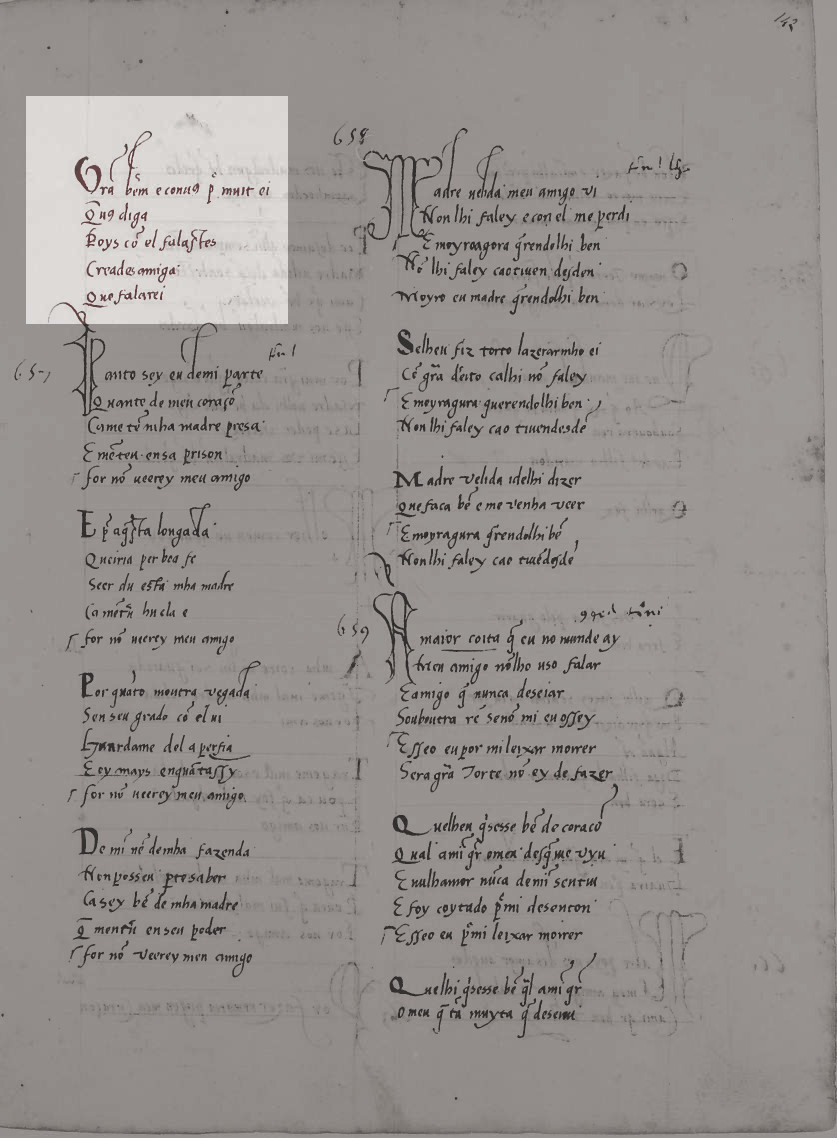 142
Ora bẽm e conuꝯ p̃ muit ei
Q̃ uꝯ diga
Poys cõ el falastes
Creades amiga
Que falarei
657
fin l
Panto sey eu demi parte
Quante de meu coraçõ
Came tẽ mha madre presa
E mẽteu ensa prison
for nõ ueerey meu amigo
E p̃ aq̃sta longada
Queiria per boa fe
Seer du esta mha madre
for nõ ueerey meu amigo
Por quãto montra vegada
Sen seu grado cõ el ui
Guardame del a perfia
E ey mays enquãtassy
for nõ ueerey meu amigo
De mi nẽ demha fazenda
Non posseu p̱te saber
Ca sey bẽ de mha madre
Q̃ mentrẽ enseu poder
for nõ veerey meu amigo
658
Madre uelida meu amigo vi
Non lhi faley e con el me perdi
E moyroagora q̃rendolhi ben
Nõ lhi faley caotiuen desden
Moyro eu madre q̃rendolhi ben
Selheu fiz torto lazerarmho ei
Cõ g̃ra dẽito calhi nõ faley
E moyragura querendolhi ben
Non lhi faley cao tiuendesdẽ
Madre velida idelhi dizer
Que faca bẽ e me venha veer
E moyragura q̃rendolhi bẽ
Non lhi faley cao tiuẽdesdẽ
659
A maior coita q̃ eu no mundo ay
Meu amigo nõlho uso falar
E amigo q̃ nunca desejar
Souboutra rẽ senõ mi eu ossey
Esseo eu por mi leixar morrer
Sera g̃ra Torto nõ ey de fazer
Quelheu q̃sesse bẽ de coraçõ
Qual ami q̃r omeu desq̃me vyu
E nulhamor nũca demi sentiu
E foy coytado p̃mi desenton
Esseo eu p̃mi leixar morrer
Quelhi q̃sesse bẽ q̃l ami q̃r
O meu q̃ tã muyta q̃ deseiou